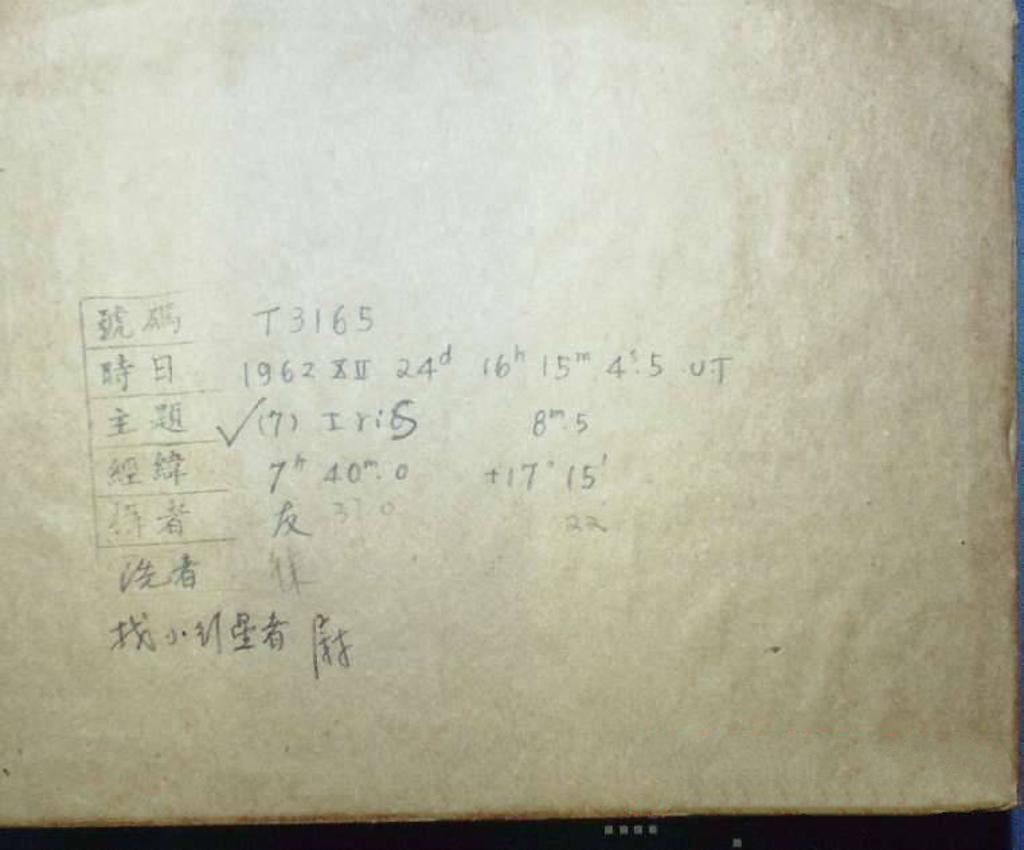 號碼 T3165
時日 1962 XII 24ᵈ 16ʰ 15ᵐ 4ˢ.5 UT
主題 ✓(7) Iris 8ᵐ.5
經緯 7ʰ 40ᵐ.0 +17° 15′
者 友 37 0 22
洗者
找小行星者